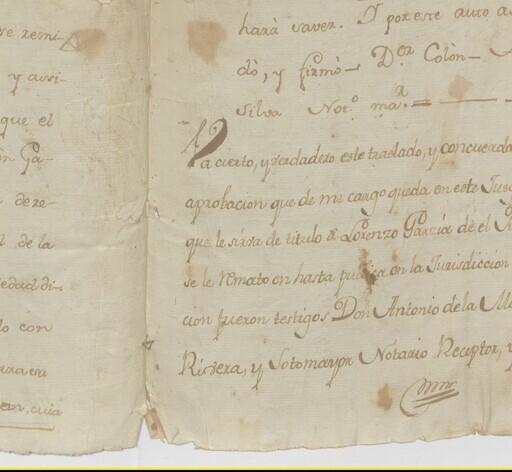 re remi-
y assi-
que el
Ga-
dere-
de la
iedad di-
lo con
cuia
hará saver. Y por este auto a
dò, y firmò- D.or Colòn-
Silva Not.o ma.r =
Va cierto, y verdadero este traslado, y concuerda
aprobacion que de mi cargo queda en este Juz
que le sirva de titulo a Lorenzo Garzia de el
se le remato en hasta publica en la Jurisdiccion
cion fueron testigos Don Antonio de la M
Rivera, y Sotomayor Notario Receptor, y